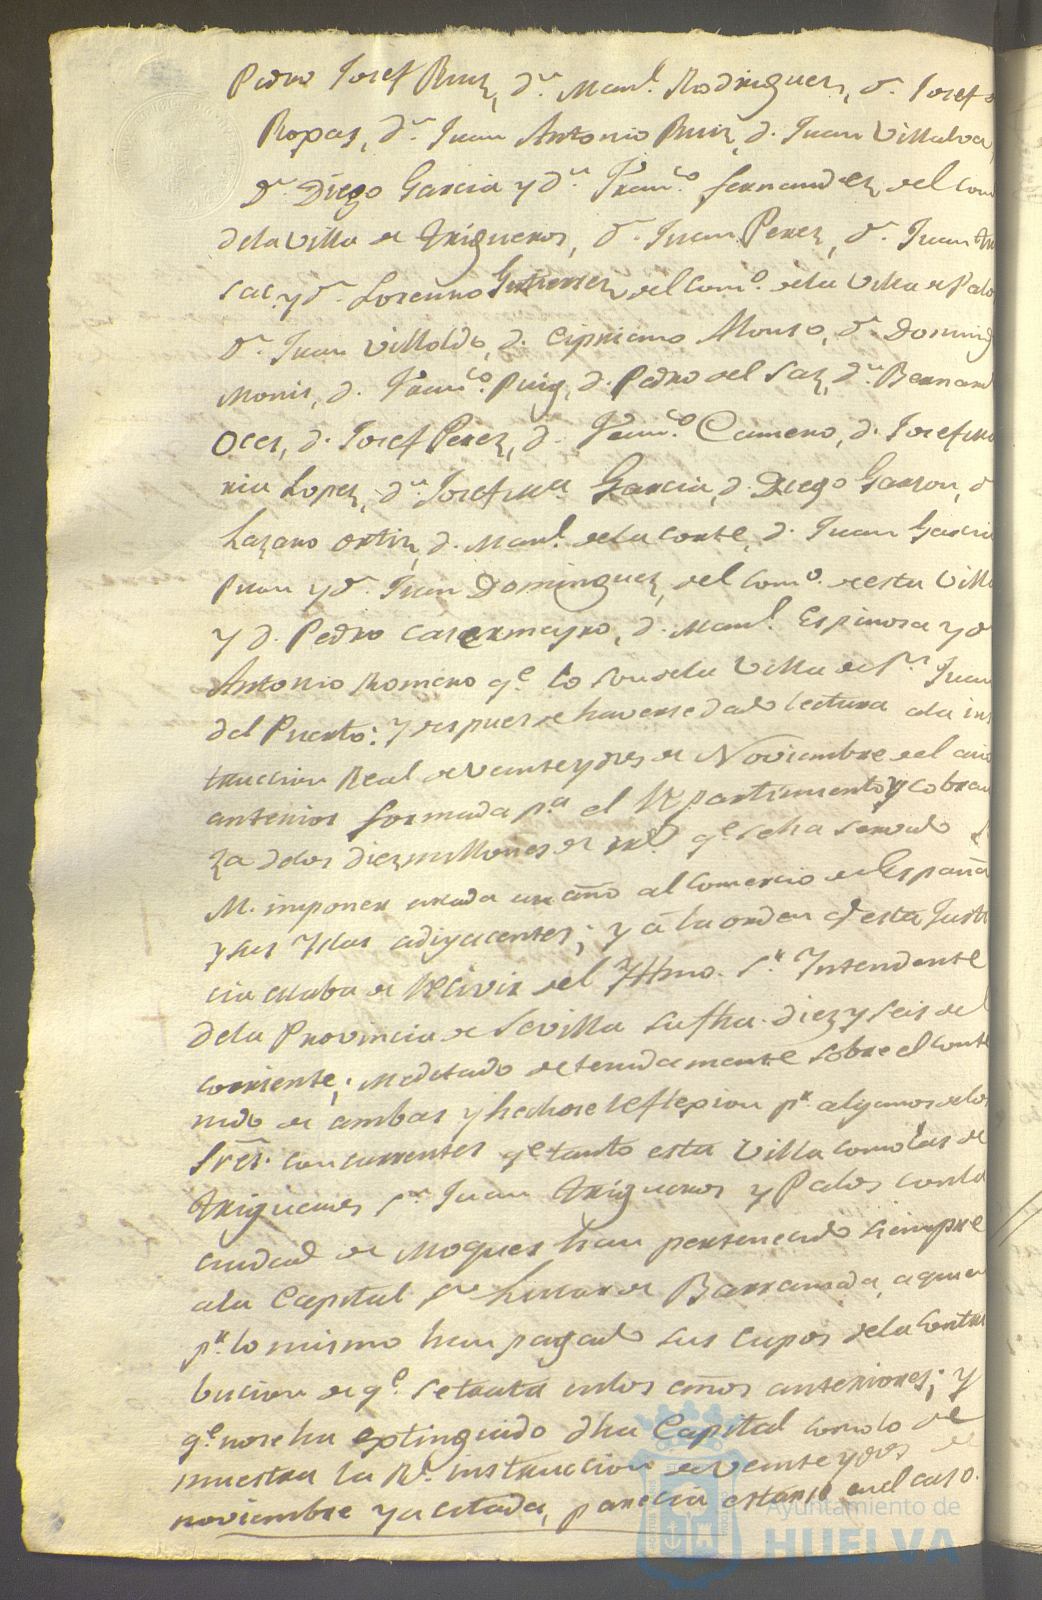 Pedro Josef Ruiz, dn. Manl. Rodriguez, dn. Josef
Ropas, dn. Juan Antonio Ruiz, d. Juan Villalva,
Dn. Diego Garcia y dn. Franco. fernandez del com
dela Villa de Trigueros, dn. Juan Perez, dn. Juan
Sac. y dn. Lorenno Gutierrez del como. dela Villa de Palo
Dn. Juan Villoldo, d. Cipriano Alonso, dn. Doming
Monis, d. Franco. Puig, d. Pedro del Saz, dn. Bernard
Oces, d. Josef Perez, d. Franco. Camero, d. Josef ma
ria Lopez, dn. Josef ma Garcia, d. Diego Garzon, d
Lazaro Ortiz, d. Manl. dela Corte, d. Juan Garcia
Puon y dn. Juan Dominguez, del como. de esta Villa
y d. Pedro Casermeyro, d. Manl. Espinosa y d
Antonio Romero qe. lo son dela Villa de Sn. Juan
del Puerto: Y despues de haverse dado lectura ala ins
truccion Real de veinte y dos de Noviembre del año
anterior formada pa. el Repartimiento y cobran
za delos diez millones de rs. qe. se ha servido S
M. imponer en cada un año al comercio de España
y sus Yslas adiyacentes; y a la orden qe. esta Justi
cia acaba de Recivir del Yllmo. Sr. Yntendente
dela Provincia de Sevilla su fha. diez y seis del
corriente; Meditado detenidamente sobre el conte
nido de ambas y hechose reflexion pr. algunos delos
Sres. concurrentes qe. tanto esta Villa como las de
Trigueros Sn. Juan Trigueros y Palos con la
ciudad de Moguer han pertenecido siempre
ala Capital Sn. Lucar de Barrameda, a quien
pr. lo mismo han pagado sus cupos dela contri
bucion de qe. se trata en los años anteriores; y
qe. no se ha extinguido dha Capital como lo de
muestra la Rl. instruccion de veinte y dos de
noviembre ya citada, parecia estarse en el caso.
Ayuntamiento de
HUELVA